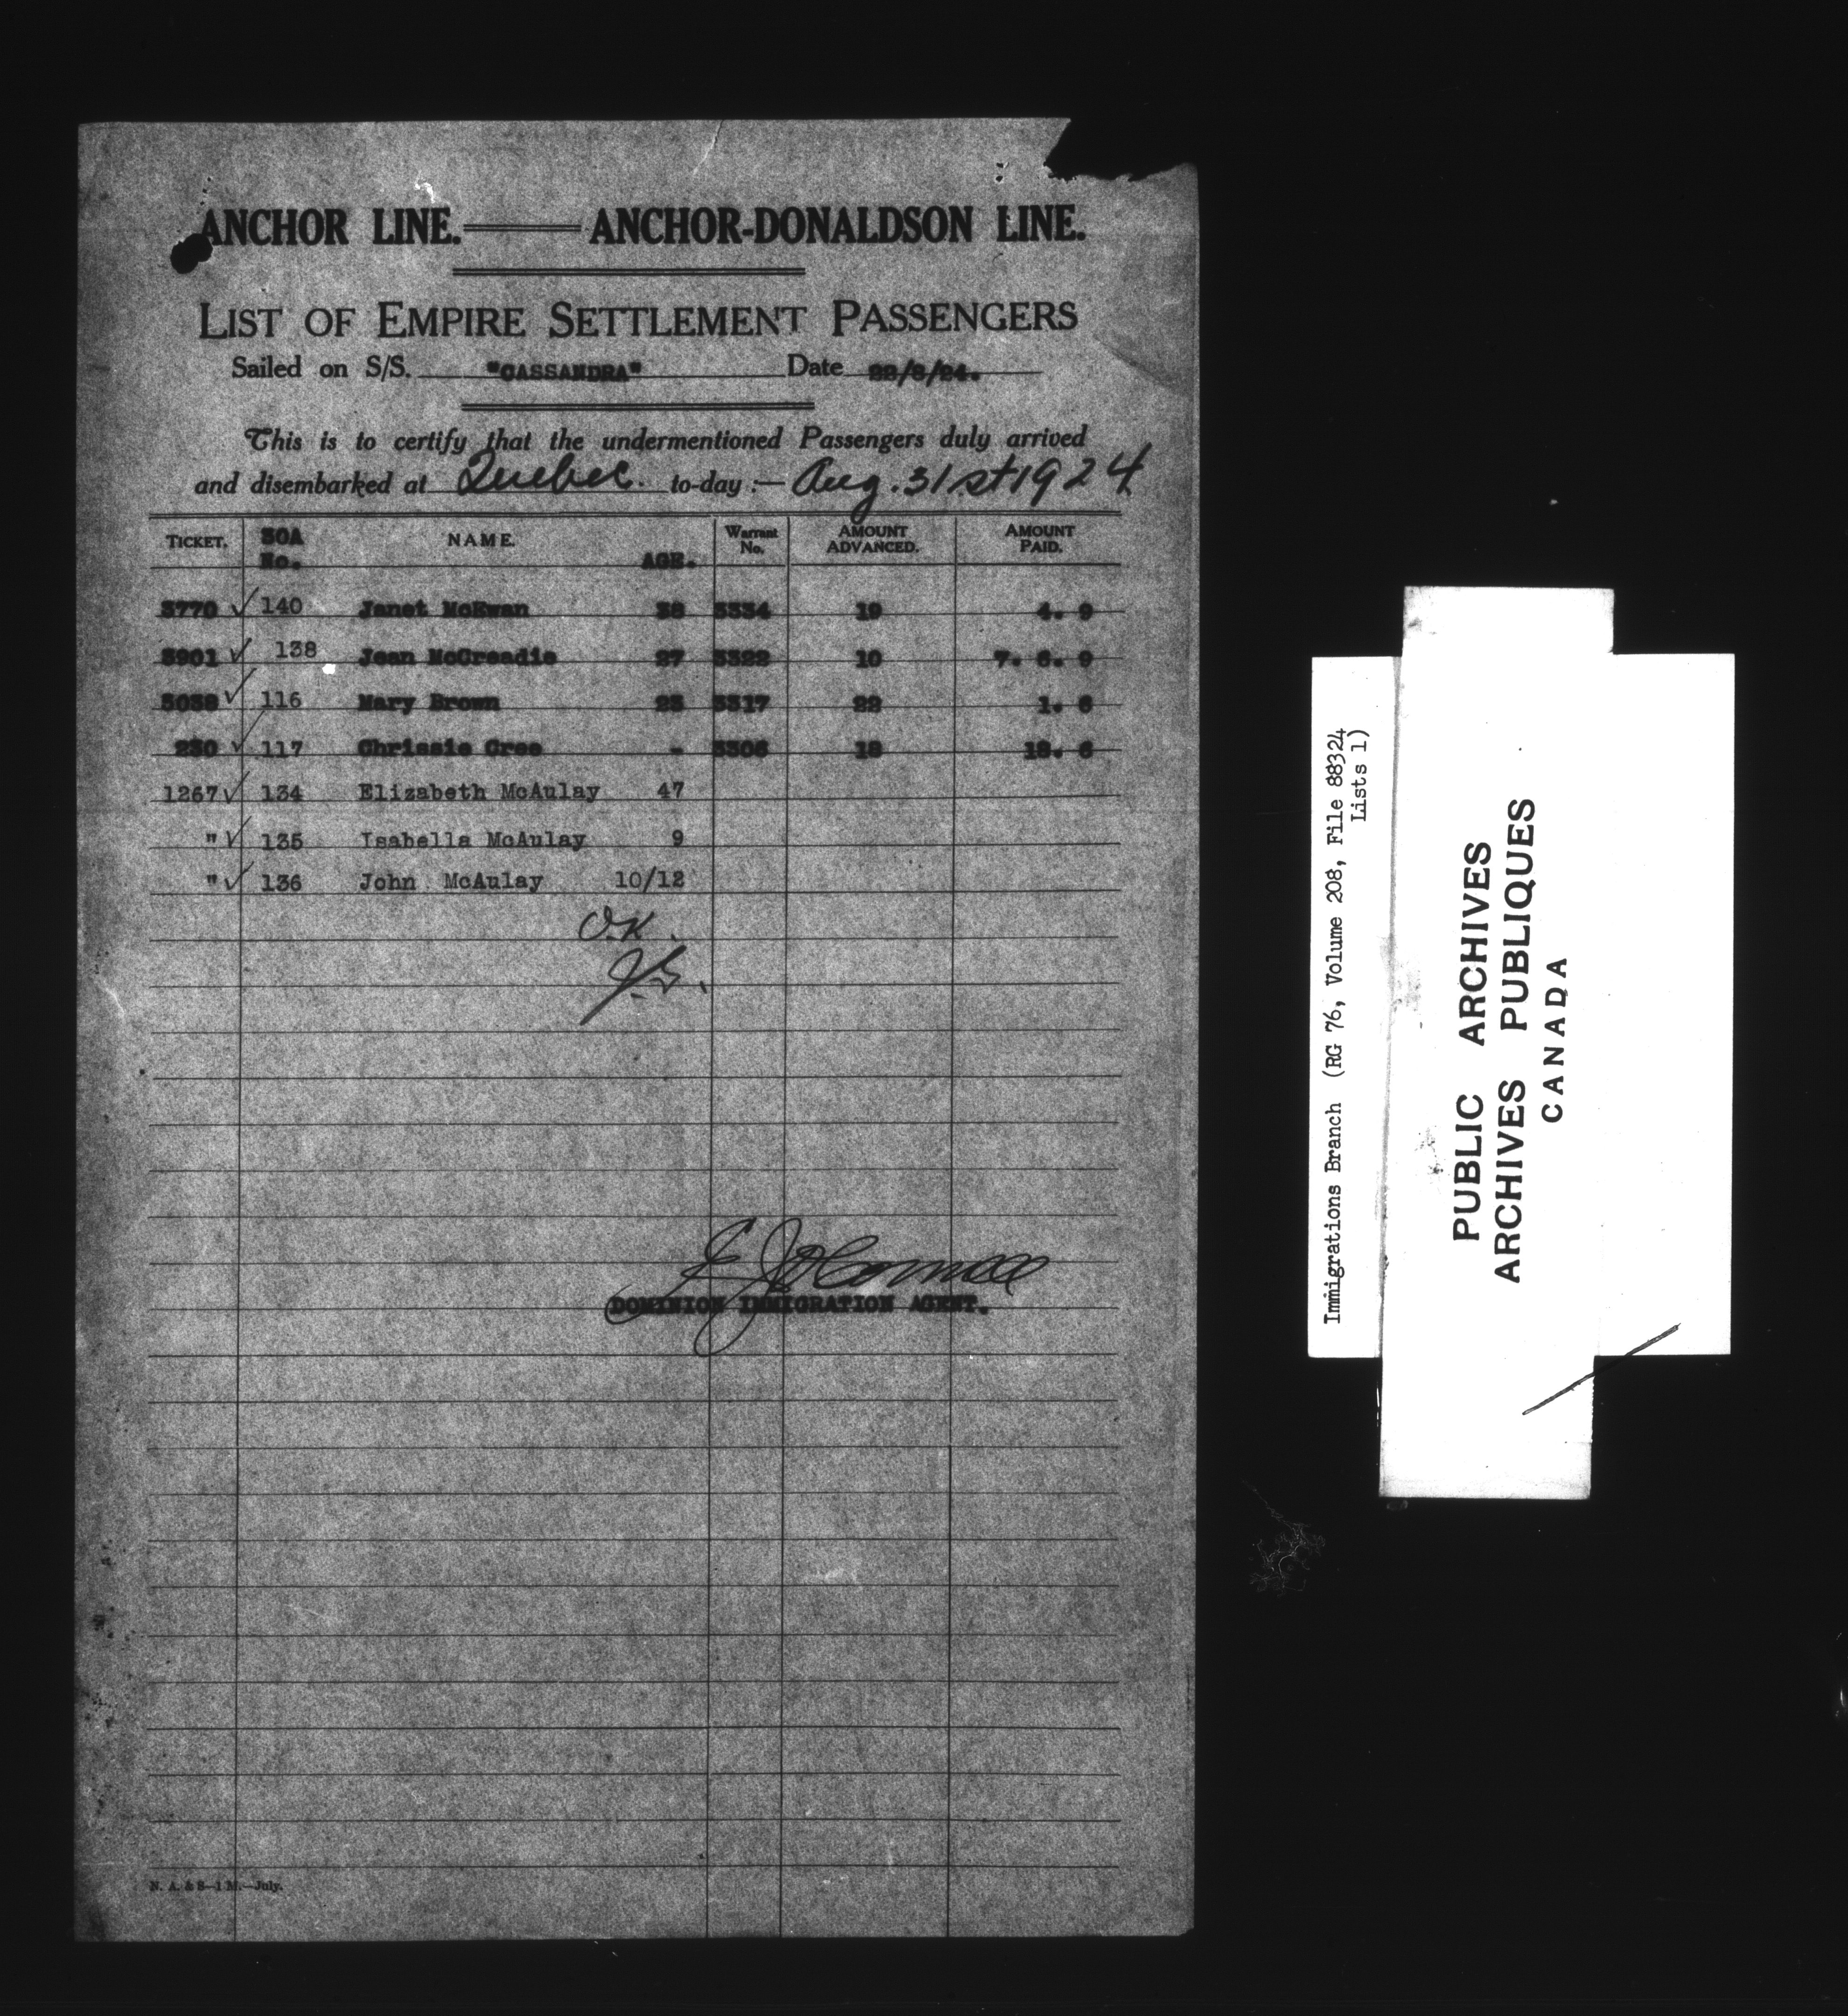 ANCHOR LINE. ANCHOR-DONALDSON LINE.
LIST OF EMPIRE SETTLEMENT PASSENGERS
Sailed on S/S. "CASSANDRA" Date 22/8/24.
This is to certify that the undermentioned Passengers duly arrived
and disembarked at Quebec. to-day :— Aug. 31st 1924
TICKET. 30A No. NAME. AGE. Warrant No. AMOUNT ADVANCED. AMOUNT PAID.
3770 140 Janet McEwan 38 3334 19 4. 9
3901 138 Jean McCreadie 27 3322 10 7. 6. 9
5038 116 Mary Brown 23 3317 22 1. 6
230 117 Chrissie Cree - 3306 18 18. 6
1267 134 Elizabeth McAulay 47
" 135 Isabella McAulay 9
" 136 John McAulay 10/12
O.K.
DOMINION IMMIGRATION AGENT.
N. A. & S—1 M.—July.
Immigrations Branch (RG 76, Volume 208, File 88324
Lists 1)
PUBLIC ARCHIVES
ARCHIVES PUBLIQUES
CANADA